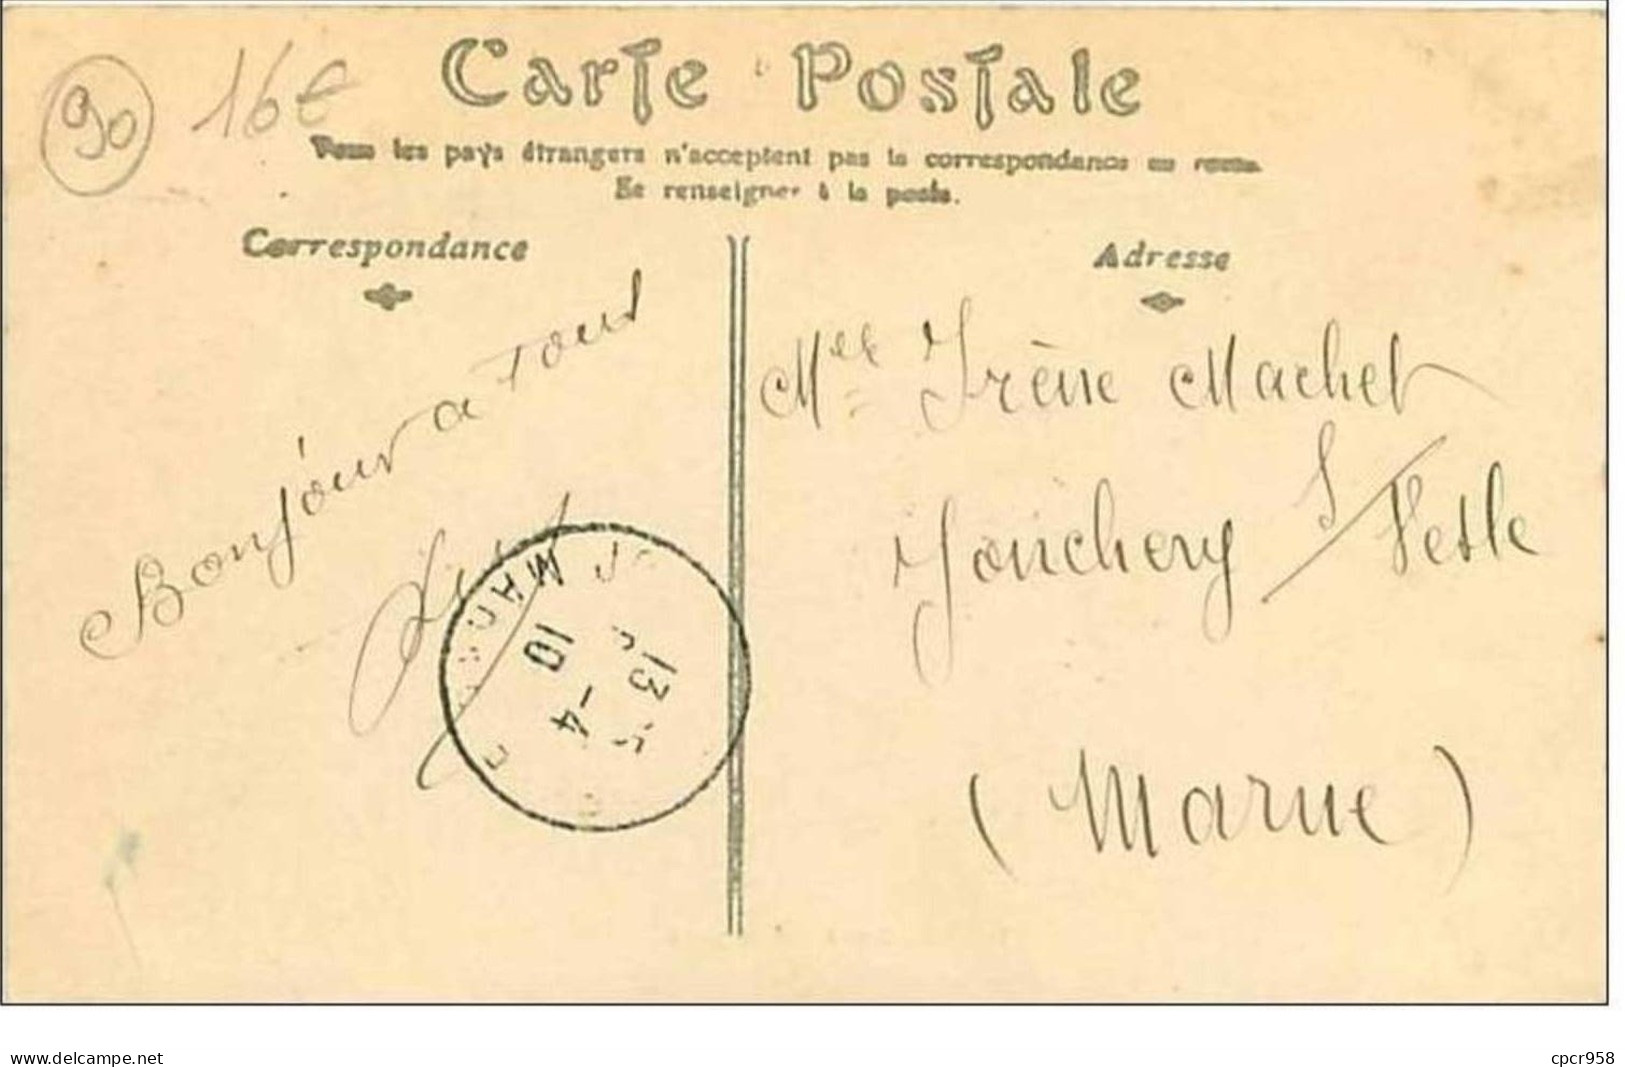 90 16€
Carte Postale
Tous les pays étrangers n'acceptent pas la correspondance au recto.
Se renseigner à la poste.
Correspondance
Adresse
Bonjour a Tous
Melle Irène Machet
Jonchery S/Vesle
(Marne)
13
10 -4
www.delcampe.net
cpcr958